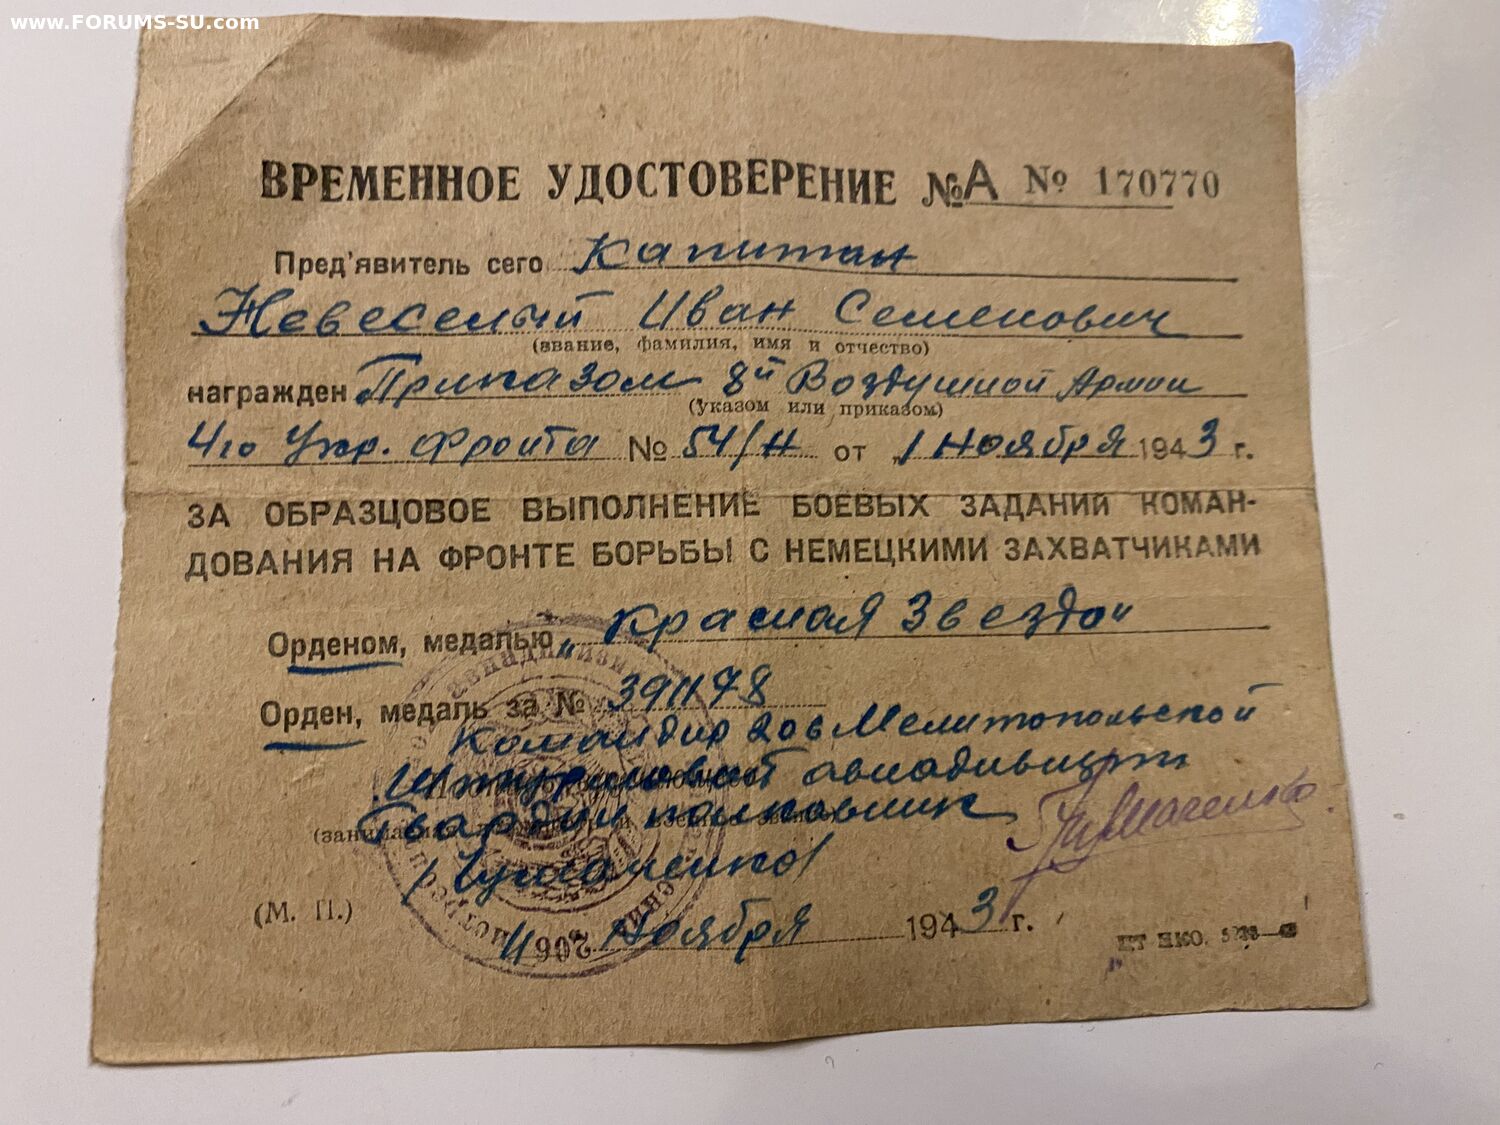 www.FORUMS-SU.com
ВРЕМЕННОЕ УДОСТОВЕРЕНИЕ №А № 170770
Пред'явитель сего Капитан
Невеселый Иван Семенович
(звание, фамилия, имя и отчество)
награжден Приказом 8й Воздушной Армии
(указом или приказом)
4го Укр. Фронта № 54/Н от 1 Ноября 1943 г.
ЗА ОБРАЗЦОВОЕ ВЫПОЛНЕНИЕ БОЕВЫХ ЗАДАНИЙ КОМАН-
ДОВАНИЯ НА ФРОНТЕ БОРЬБЫ С НЕМЕЦКИМИ ЗАХВАТЧИКАМИ
Орденом, медалью „Красная Звезда"
Орден, медаль за № 391178
Командир 206 Мелитопольской
Штурмовой авиадивизии
Гвардии полковник
/Чумаченко/
(М. П.)
206
4 Ноября 1943 г.